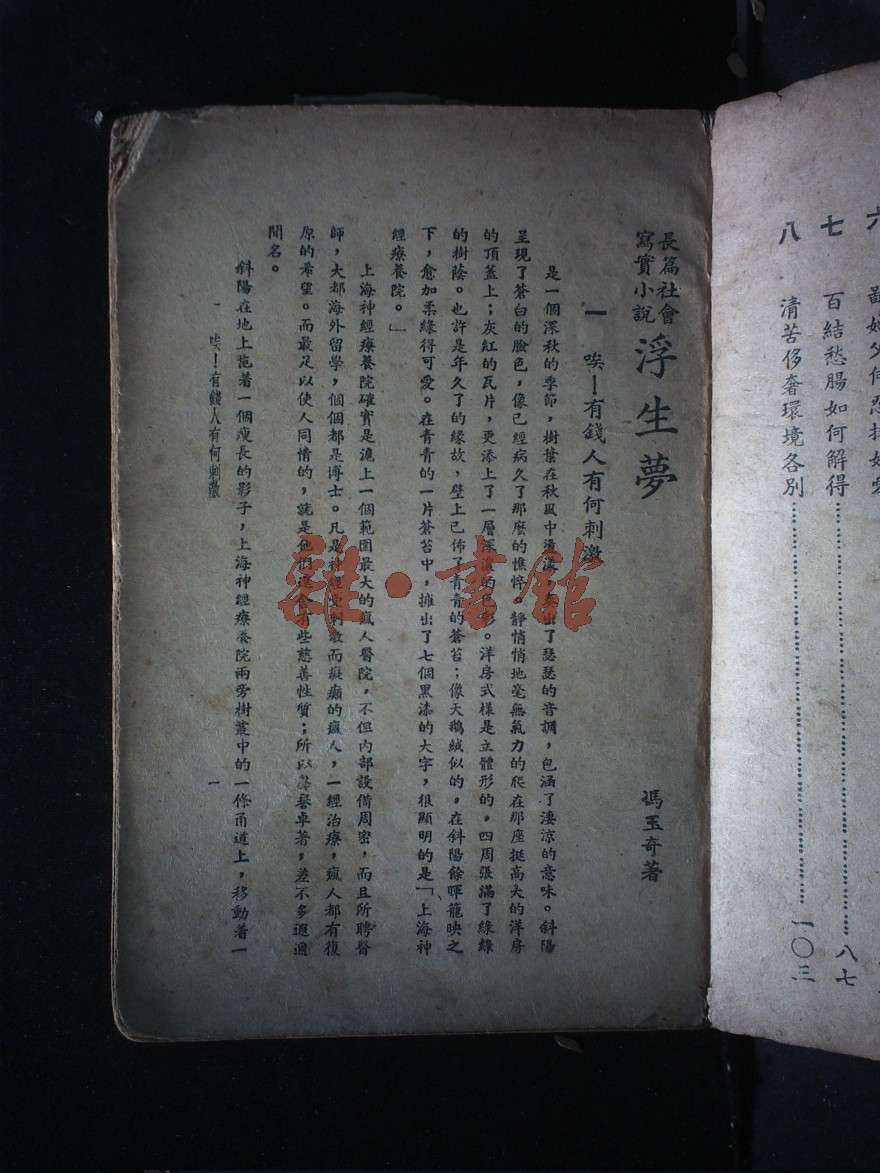 六
七 百結愁腸如何解得……八七
八 清苦侈奢環境各別……一〇三
長篇社會
寫實小說
浮生夢
馮玉奇著
一 唉!有錢人有何刺激
是一個深秋的季節,樹葉在秋風中 出了瑟瑟的音調,包涵了淒涼的意味。斜陽
呈現了蒼白的臉色,像已經病久了那麽的憔悴,靜悄悄地毫無氣力的爬在那座挺高大的洋房
的頂蓋上;灰紅的瓦片,更添上了一層深 的色彩。洋房式樣是立體形的,四周張滿了綠綠
的樹蔭。也許是年久了的緣故,壁上已佈了青青的蒼苔;像天鵝絨似的,在斜陽餘暉籠映之
下,愈加柔綠得可愛。在青青的一片蒼苔中,擁出了七個黑漆的大字,很顯明的是「上海神
經療養院。」
上海神經療養院確實是滬上一個範圍最大的瘋人醫院,不但內部設備周密,而且所聘醫
師,大都海外留學,個個都是博士。凡是神經受刺激而癡癲的瘋人,一經治療,瘋人都有復
原的希望。而最足以使人同情的,就是他們還含有些慈善性質;所以 譽卓著,差不多遐邇
聞名。
斜陽在地上拖着一個瘦長的影子,上海神經療養院兩旁樹叢中的一條甬道上,移動着一
一 唉!有錢人有何刺激
一
雜·書館